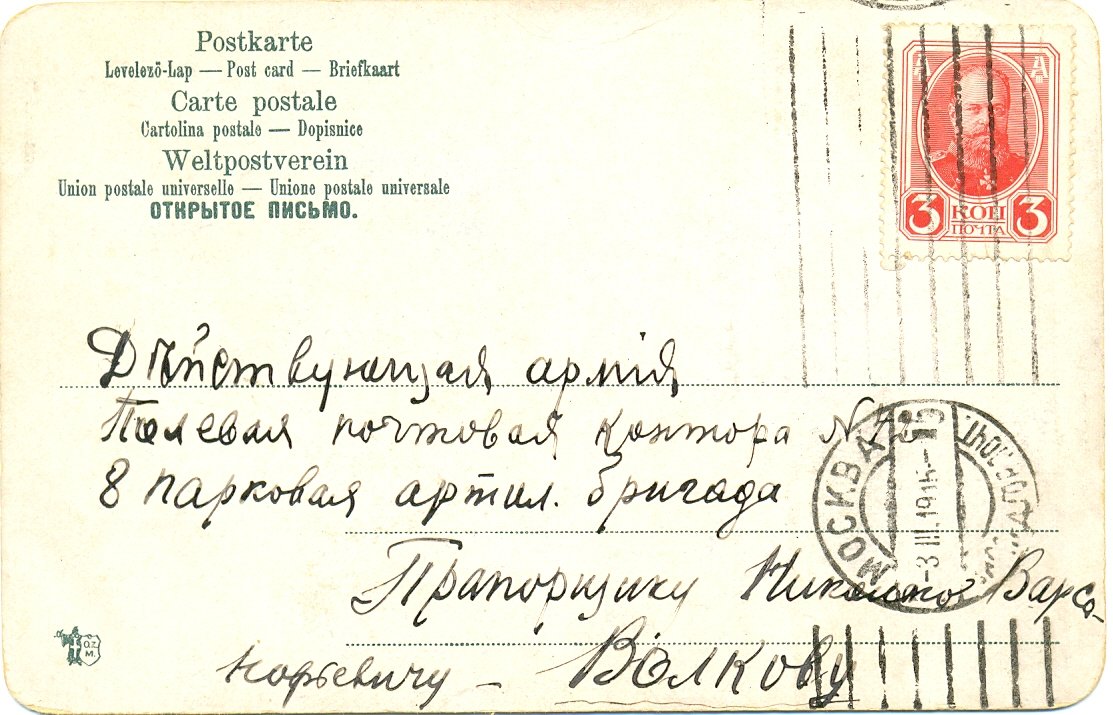 Postkarte
Levelezö-Lap — Post card — Briefkaart
Carte postale
Cartolina postale — Dopisnice
Weltpostverein
Union postale universelle — Unione postale universale
ОТКРЫТОЕ ПИСЬМО.
3 КОП 3
ПОЧТА
Дѣйствующая армія
Полевая почтовая контора №
8 парковая артил. бригада
МОСКВА
-3 III.1915
Прапорщику Николаю Варсо-
нофьевичу – Волкову
O.Z.
M.